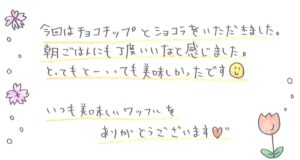 今回はチョコチップとショコラをいただきました。
朝ごはんにも丁度いいなと感じました。
とってもとーっても美味しかったです
いつも美味しいワッフルを
ありがとうございます